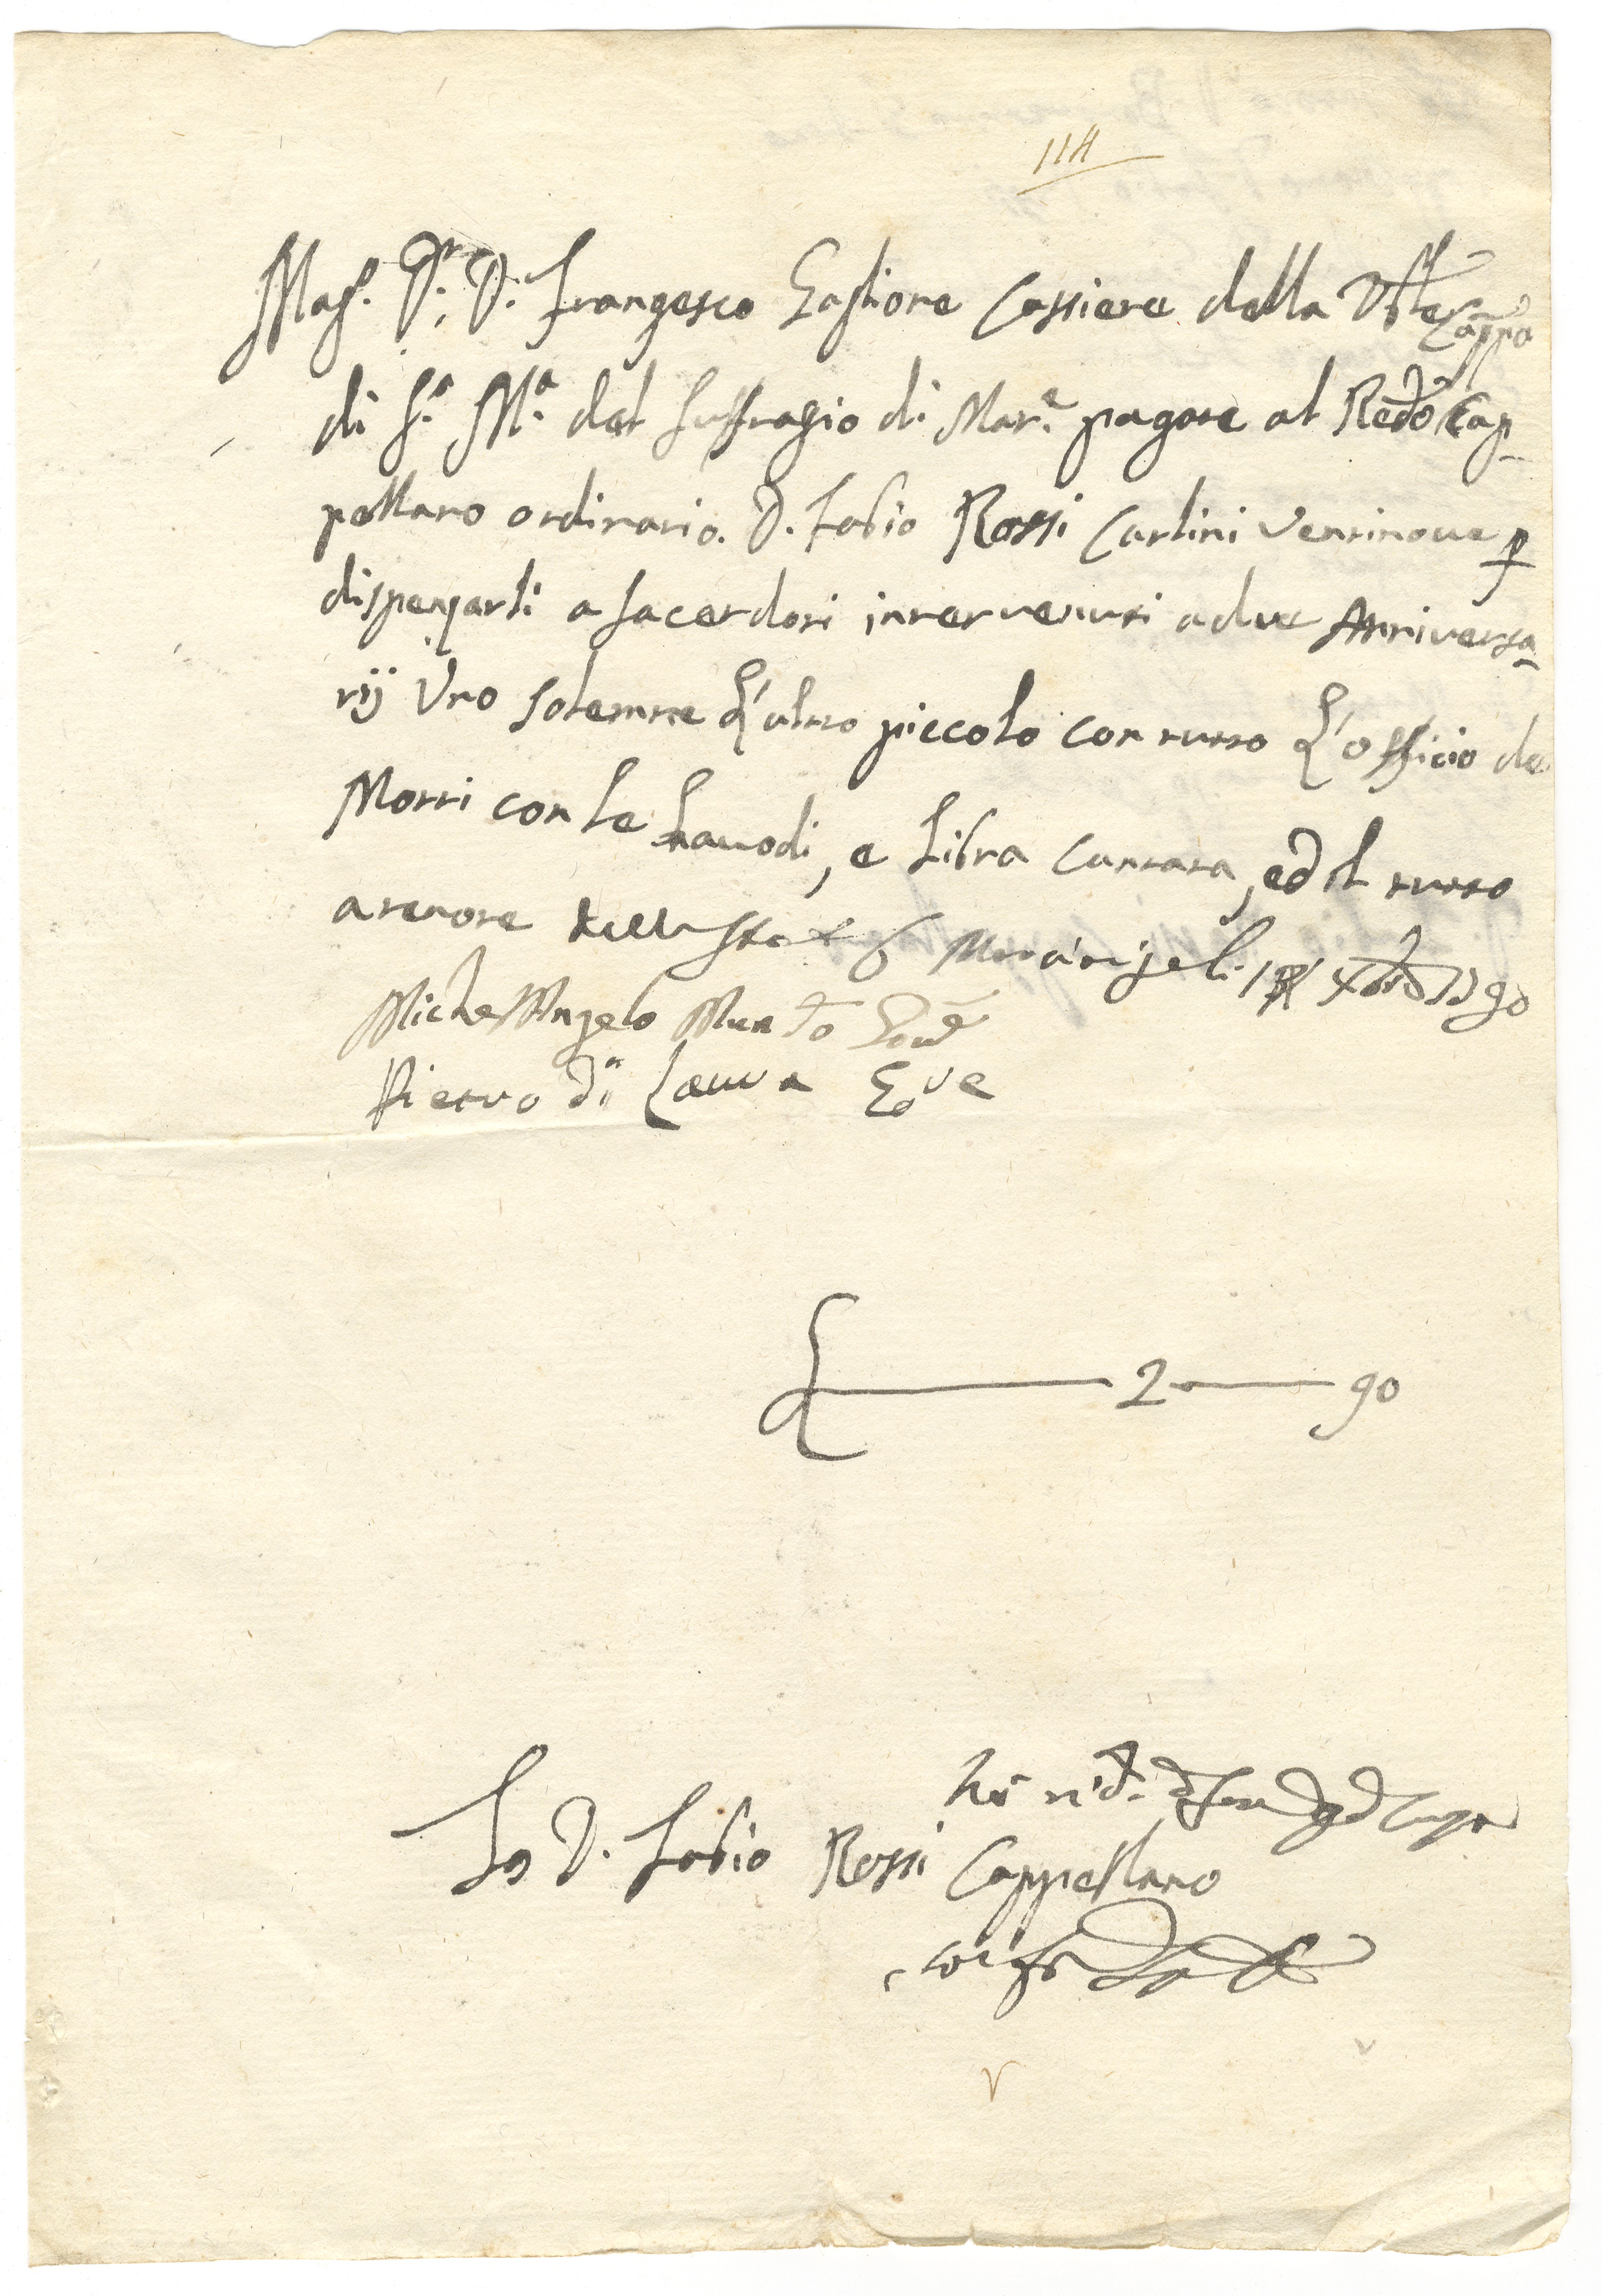 114
Mag.co Sr. D. Frangesco Gastione Cassiere della Vble Cappa
di S.a M.a del Suffragio di Mar.e pagare al Redo Cap-
pellano ordinario. D. Fabio Rossi Carlini Ventinove p
dispenzarli a Sacerdoti intervenuti a due Anniversa-
rij Uno solemne L'altro piccolo con tutto L'officio de
Morti con le Lauodi, e Libra Cantata, ed il tutto
a tenore della
Michel'Angelo
Pietro di Laura Eve
2 90
Io D. Fabio Rossi Cappellano